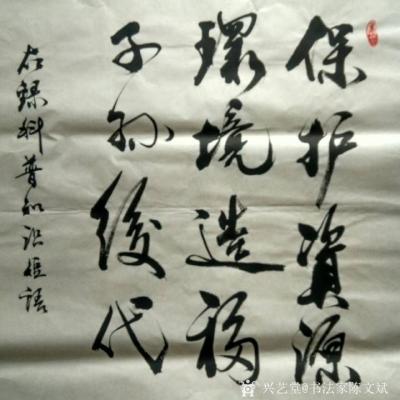 保护資源
環境造福
子孙後代
右録科普知识短语
兴艺堂@书法家陈文斌